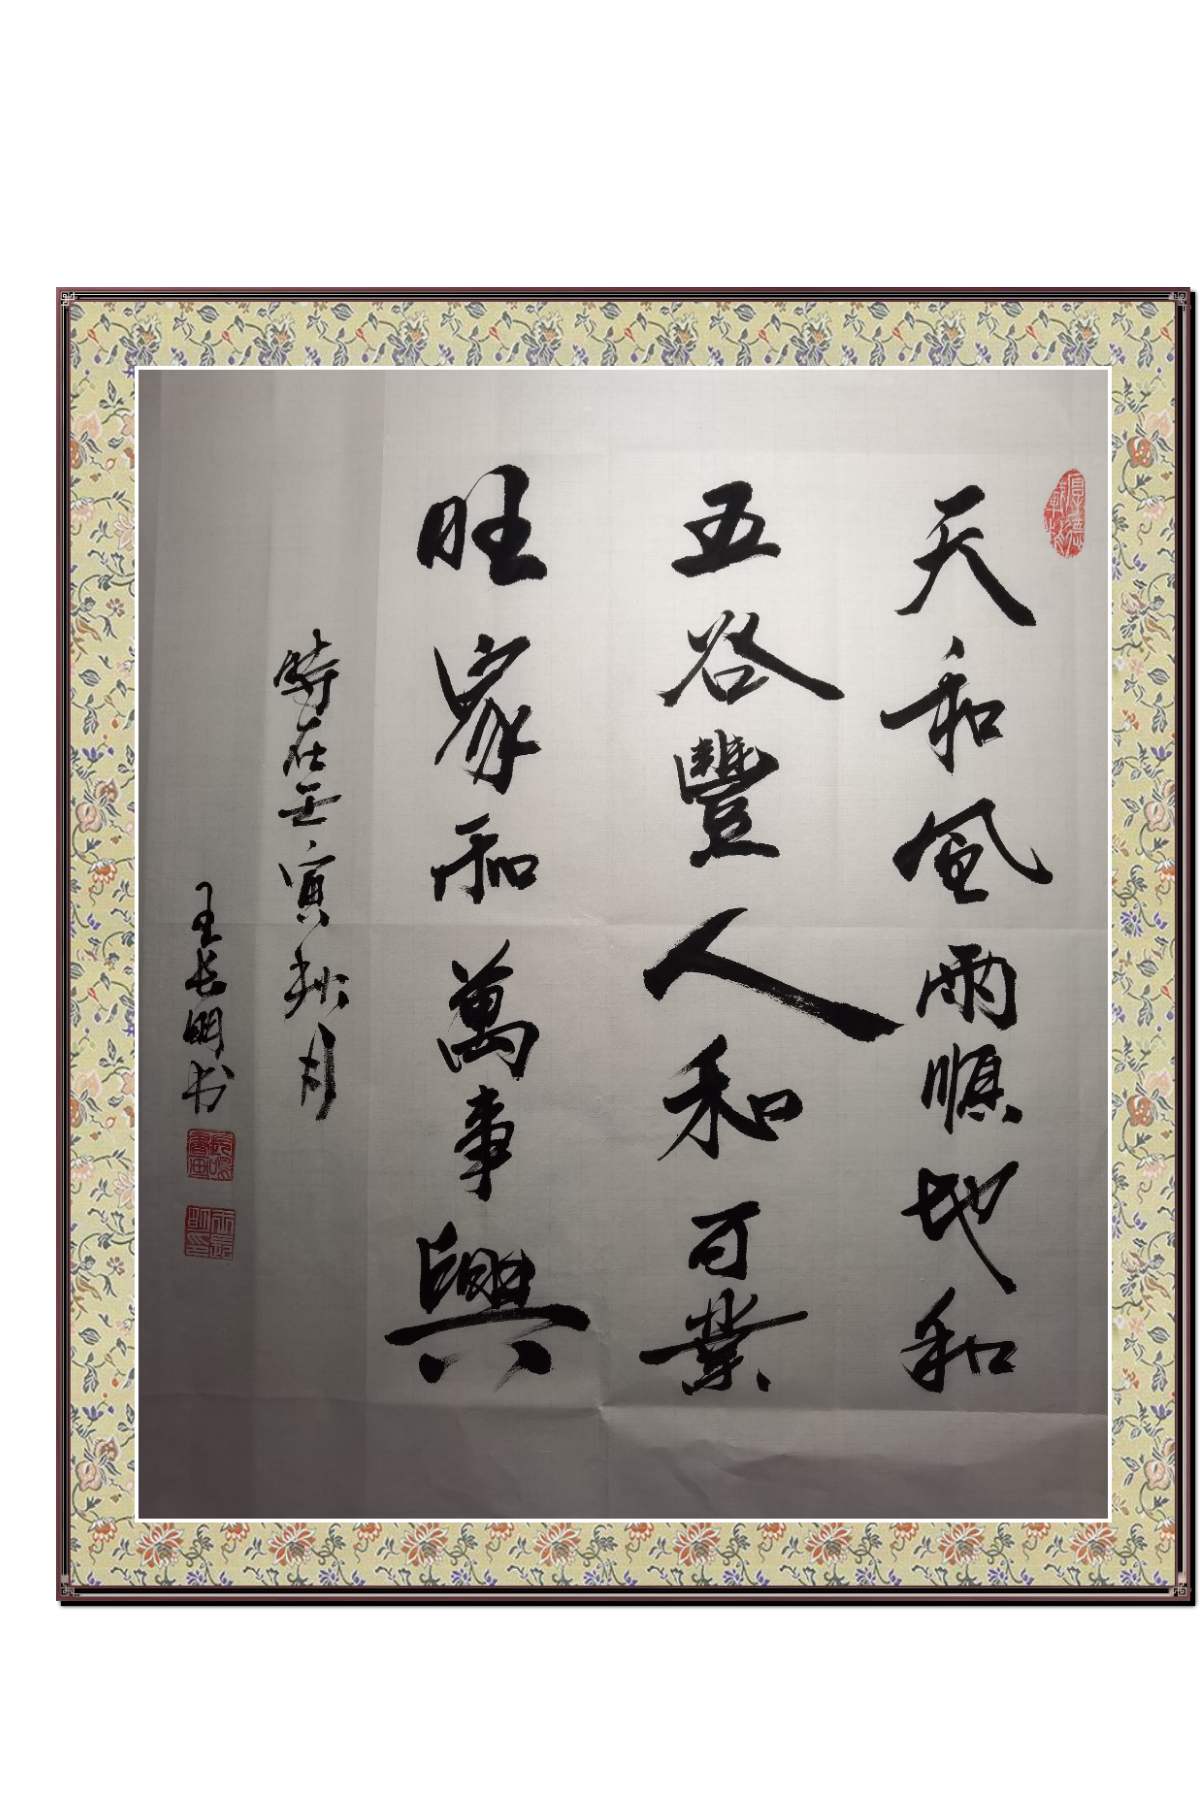 天和風雨順地和
五谷豐人和百業
旺家和萬事興
時在壬寅秋月
王長明书
厚德載物